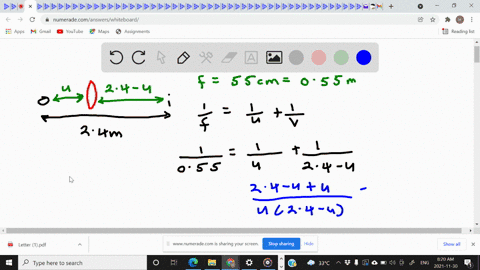 numerade.com/answers/whiteboard/
Apps
Gmail
YouTube
Maps
Reading list
A
f = 55 cm = 0.55 m
u
2.4-u
o
i
2.4m
1/f = 1/u + 1/v
1/0.55 = 1/u + 1/2.4-u
2.4-u+u/u(2.4-u) =
Letter (1).pdf
www.numerade.com is sharing your screen.
Stop sharing
Hide
Show all
Type here to search
33°C
8:29 AM
2021-11-30